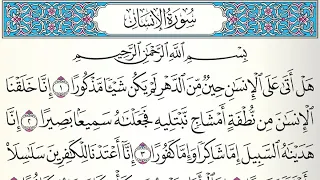 سُورَةُ الْإِنْسَانِ
بِسْمِ اللَّهِ الرَّحْمَٰنِ الرَّحِيمِ
هَلْ أَتَىٰ عَلَى الْإِنسَٰنِ حِينٌ مِّنَ الدَّهْرِ لَمْ يَكُن شَيْـًٔا مَّذْكُورًا ١ إِنَّا خَلَقْنَا
الْإِنسَٰنَ مِن نُّطْفَةٍ أَمْشَاجٍ نَّبْتَلِيهِ فَجَعَلْنَٰهُ سَمِيعًۢا بَصِيرًا ٢ إِنَّا
هَدَيْنَٰهُ السَّبِيلَ إِمَّا شَاكِرًا وَإِمَّا كَفُورًا ٣ إِنَّا أَعْتَدْنَا لِلْكَٰفِرِينَ سَلَٰسِلَا۟